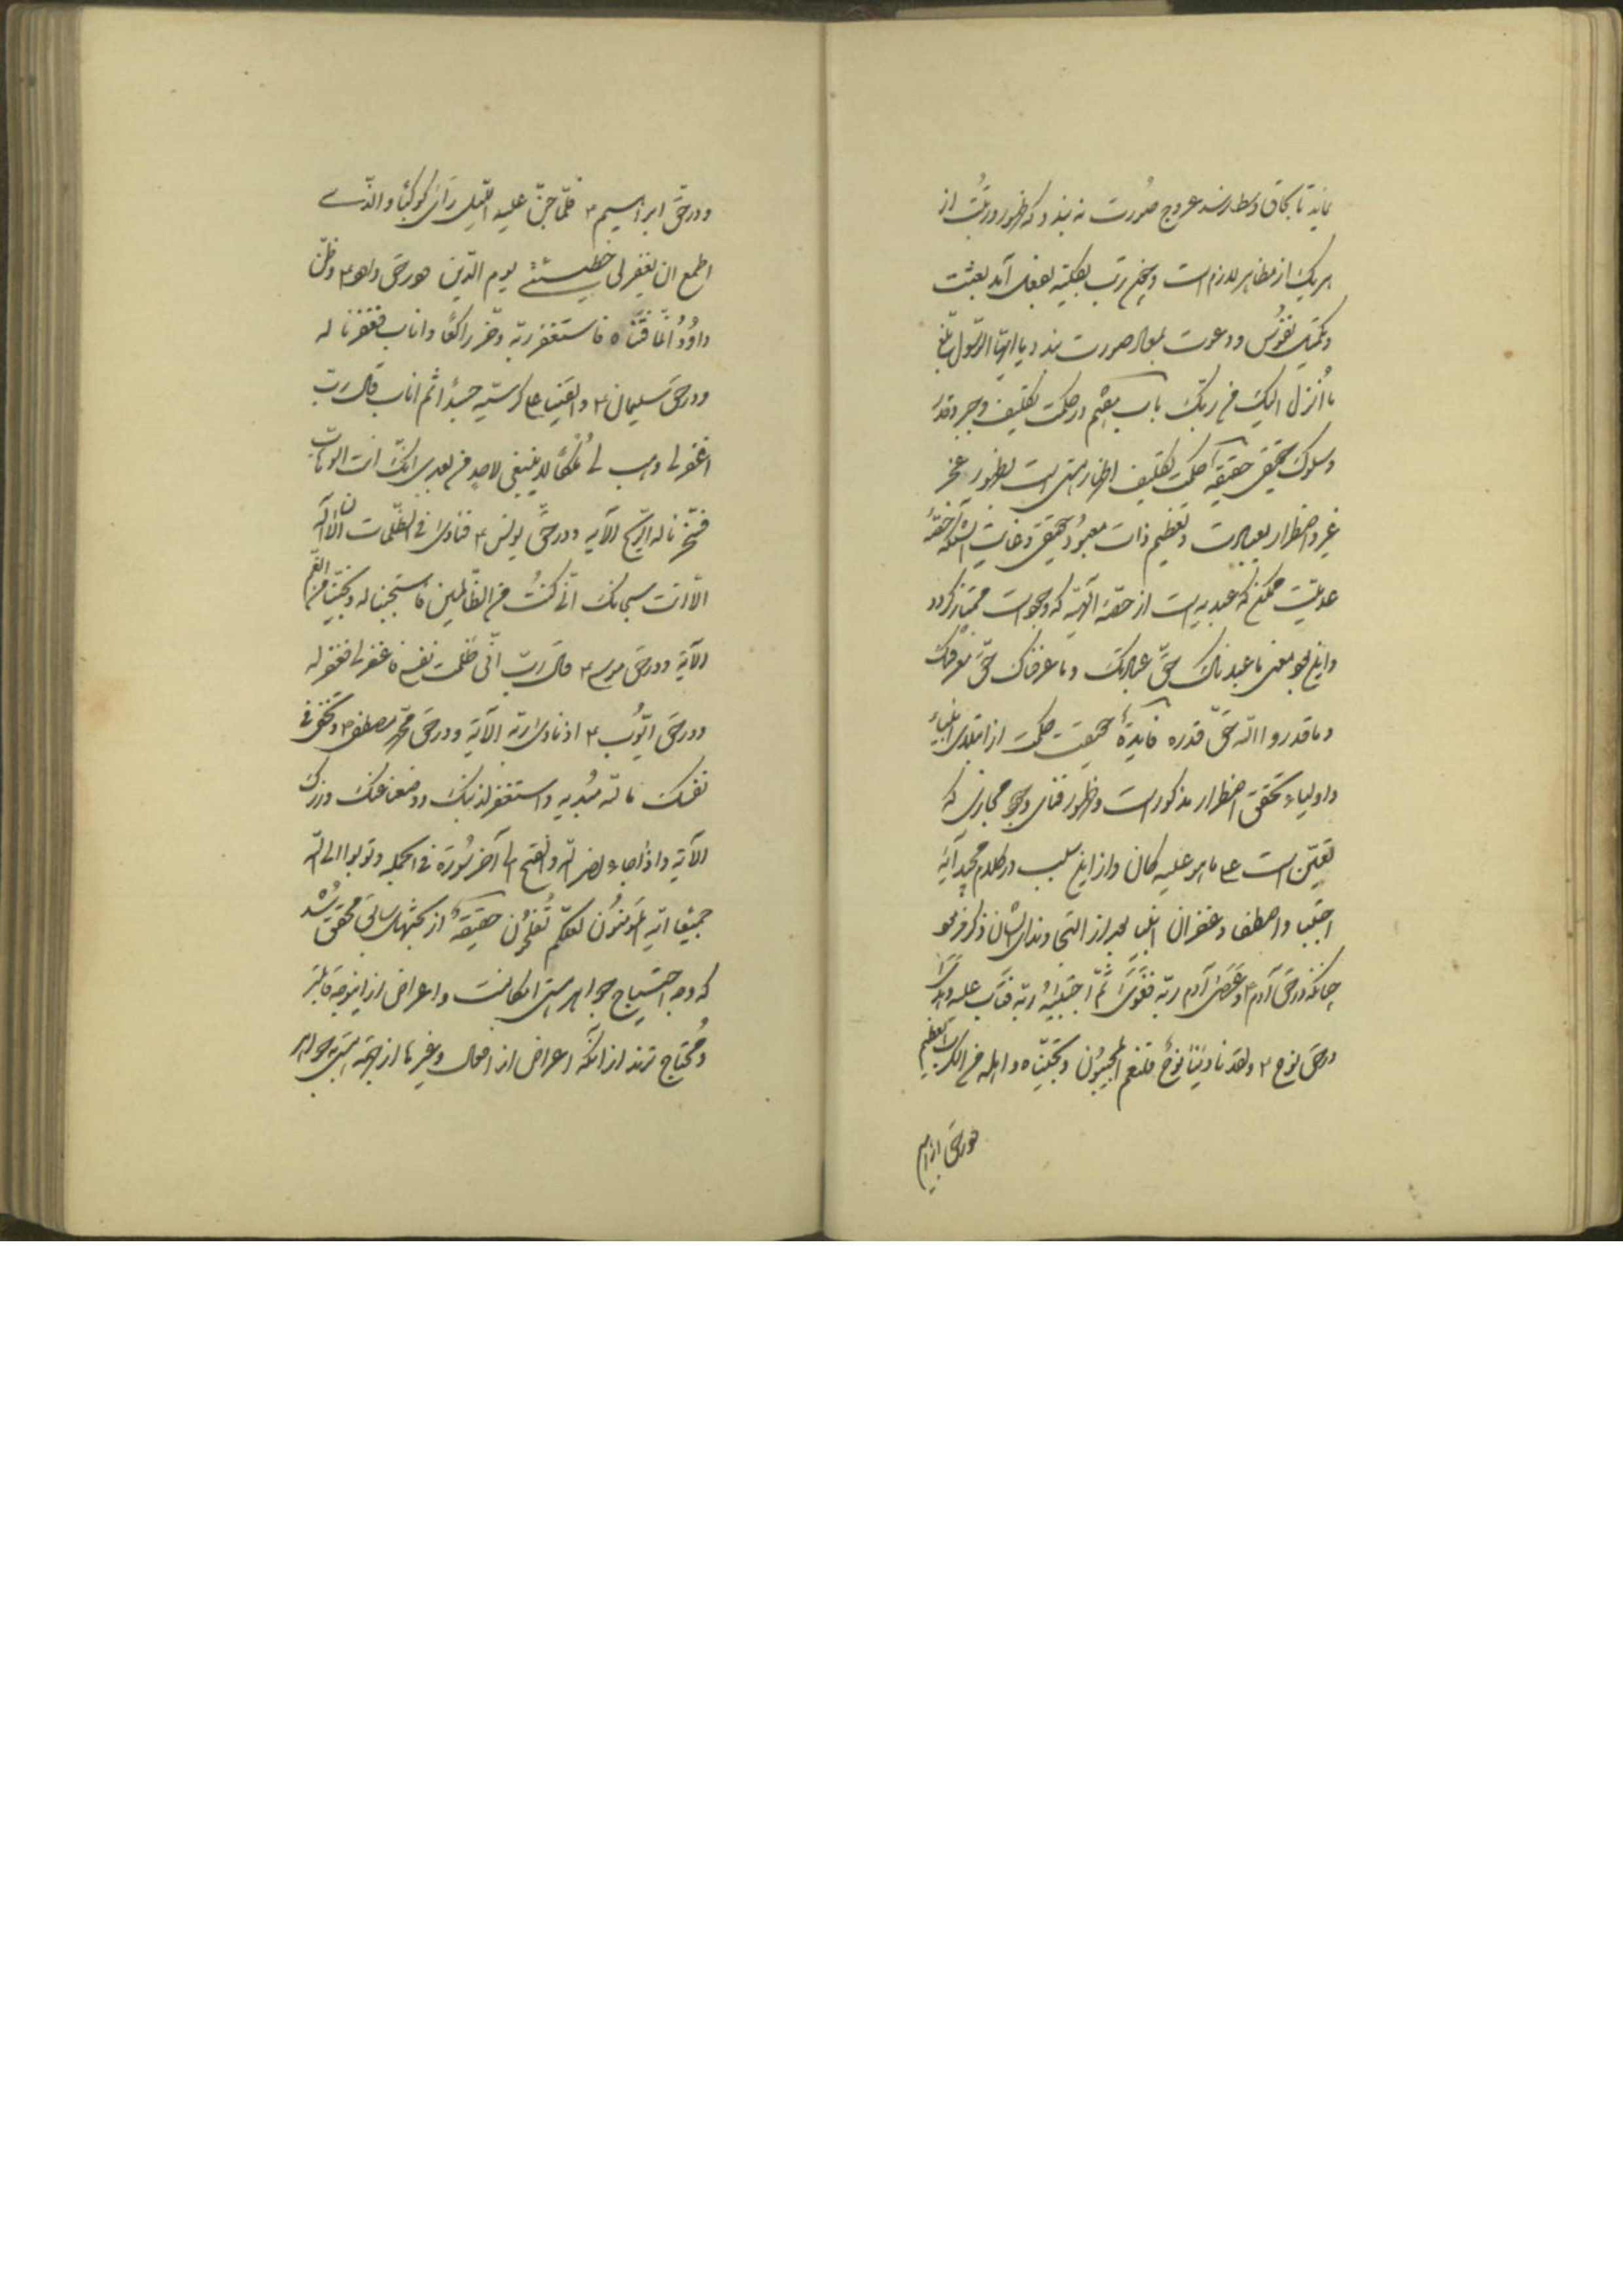 نماید تا بحاق وسط رسد عروج صورت نه بندد که ظهور و رتبت از
هر یک از مظاهر لازم است و جمیع رتب بکلیه بفعل آید بعثت
و تکمیل نفوس و دعوت بمعاد صورت بندد یا ایها الرسول بلغ
ما انزل الیک من ربک باب هیجم در حکمت تکلیف و جبر و قدر
وسلوک تحقیق حقیقة حکمت تکلیف اظهار هستی است بظهور عجز
غیر و اضطرار بعبادت و تعظیم ذات معبود حقیقی و غایت آنکه حقه
عدمیت ممکن که عبدیه است از حقه الهیه که وجوبست ممتاز گردد
و این بود معنی ما عبدناک حق عبادتک و ما عرفناک حق معرفتک
و ما قدروا الله حق قدره فایدة حقیقت حکمت از ابتلای انبیاء
و اولیاء تحقق اضطرار مذکور است و ظهور فنای وجود مجازی که
تعین است علی ما هو علیه کان و از این سبب در کلام مجید آیه
اجتبا و اصطفا و غفران انبیا بعد از التجا و ندای ایشان ذکر فرمود
چنانکه در حق آدم ۴ و عصی آدم ربه فغوی ثم اجتبیه ربه فتاب علیه و هدی
در حق نوح ۴ و لقد نادینا نوح فلنعم المجیبون و نجیناه و اهله من الکرب العظیم
و در حق ابراهیم
و در حق ابراهیم ۴ فلما جن علیه اللیل رأی کوکبا و الذی
اطمع ان یغفر لی خطیئتی یوم الدین و در حق داود ۴ و ظن
داود انما فتناه فاستغفر ربه و خر راکعا و اناب فغفرنا له
و در حق سلیمان ۴ و القینا علی کرسیه جسدا ثم اناب قال رب
اغفر لی و هب لی ملکا لا ینبغی لاحد من بعدی انک انت الوهاب
فسخرنا له الریح الآیه و در حق یونس ۴ فنادی فی الظلمات ان لا اله
الا انت سبحانک انی کنت من الظالمین فاستجبنا له و نجیناه من الغم
الآیة و در حق موسی ۴ قال رب انی ظلمت نفسی فاغفر لی فغفر له
و در حق ایوب ۴ اذ نادی ربه الآیة و در حق محمد مصطفی ۴ و تخفی فی
نفسک ما الله مبدیه و استغفر لذنبک و وضعنا عنک وزرک
الآیة و اذا جاء نصر الله و الفتح الی آخر سورة فی الجمله و توبوا الی الله
جمیعا ایه المؤمنون لعلکم تفلحون حقیقة از بحثهای سابق محقق شد
که وجه احتیاج جواهر هستی امکانست و اعراض از اینوجه قابلتر
و محتاج ترند از آنکه اعراض از افعال و غیرها از جهة هستی بجواهر